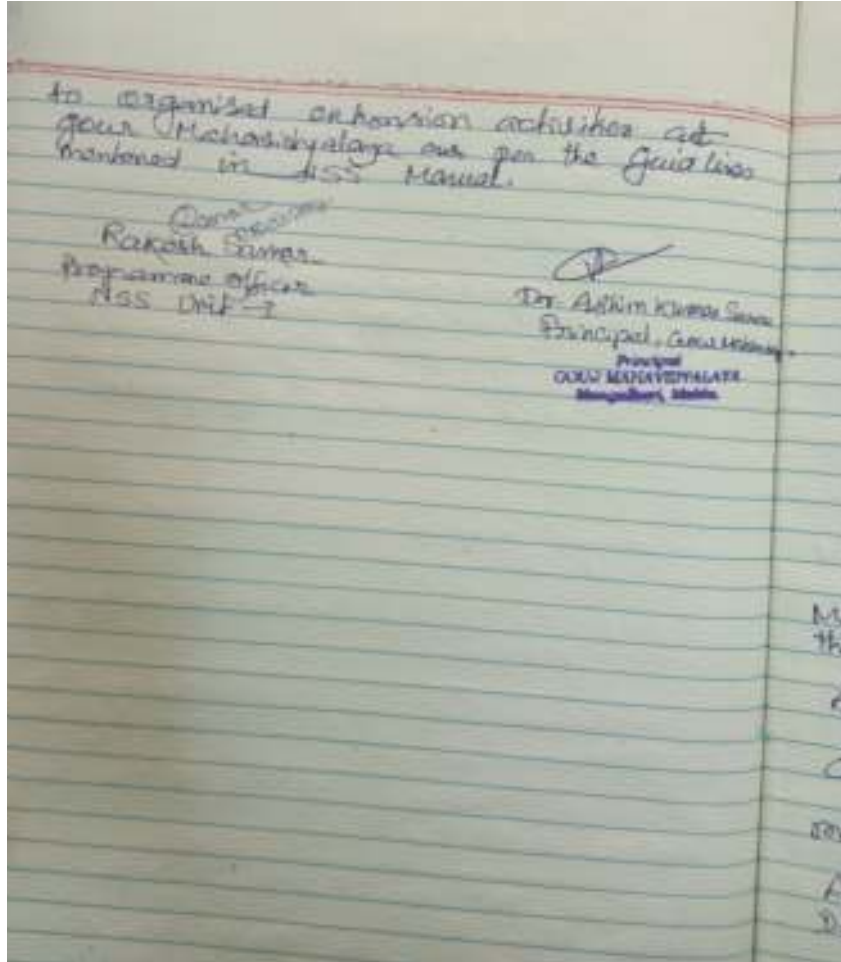 to organised extension activities at
Gour Mahavidyalaya as per the Guid lines
mentioned in NSS Manual.
Rakesh Sarkar
Programme Officer
NSS Unit - I
Dr. Ashim Kumar Sarkar
Principal, Gour Mahavidyalaya
Principal
GOUR MAHAVIDYALAYA
Mangalbari, Malda